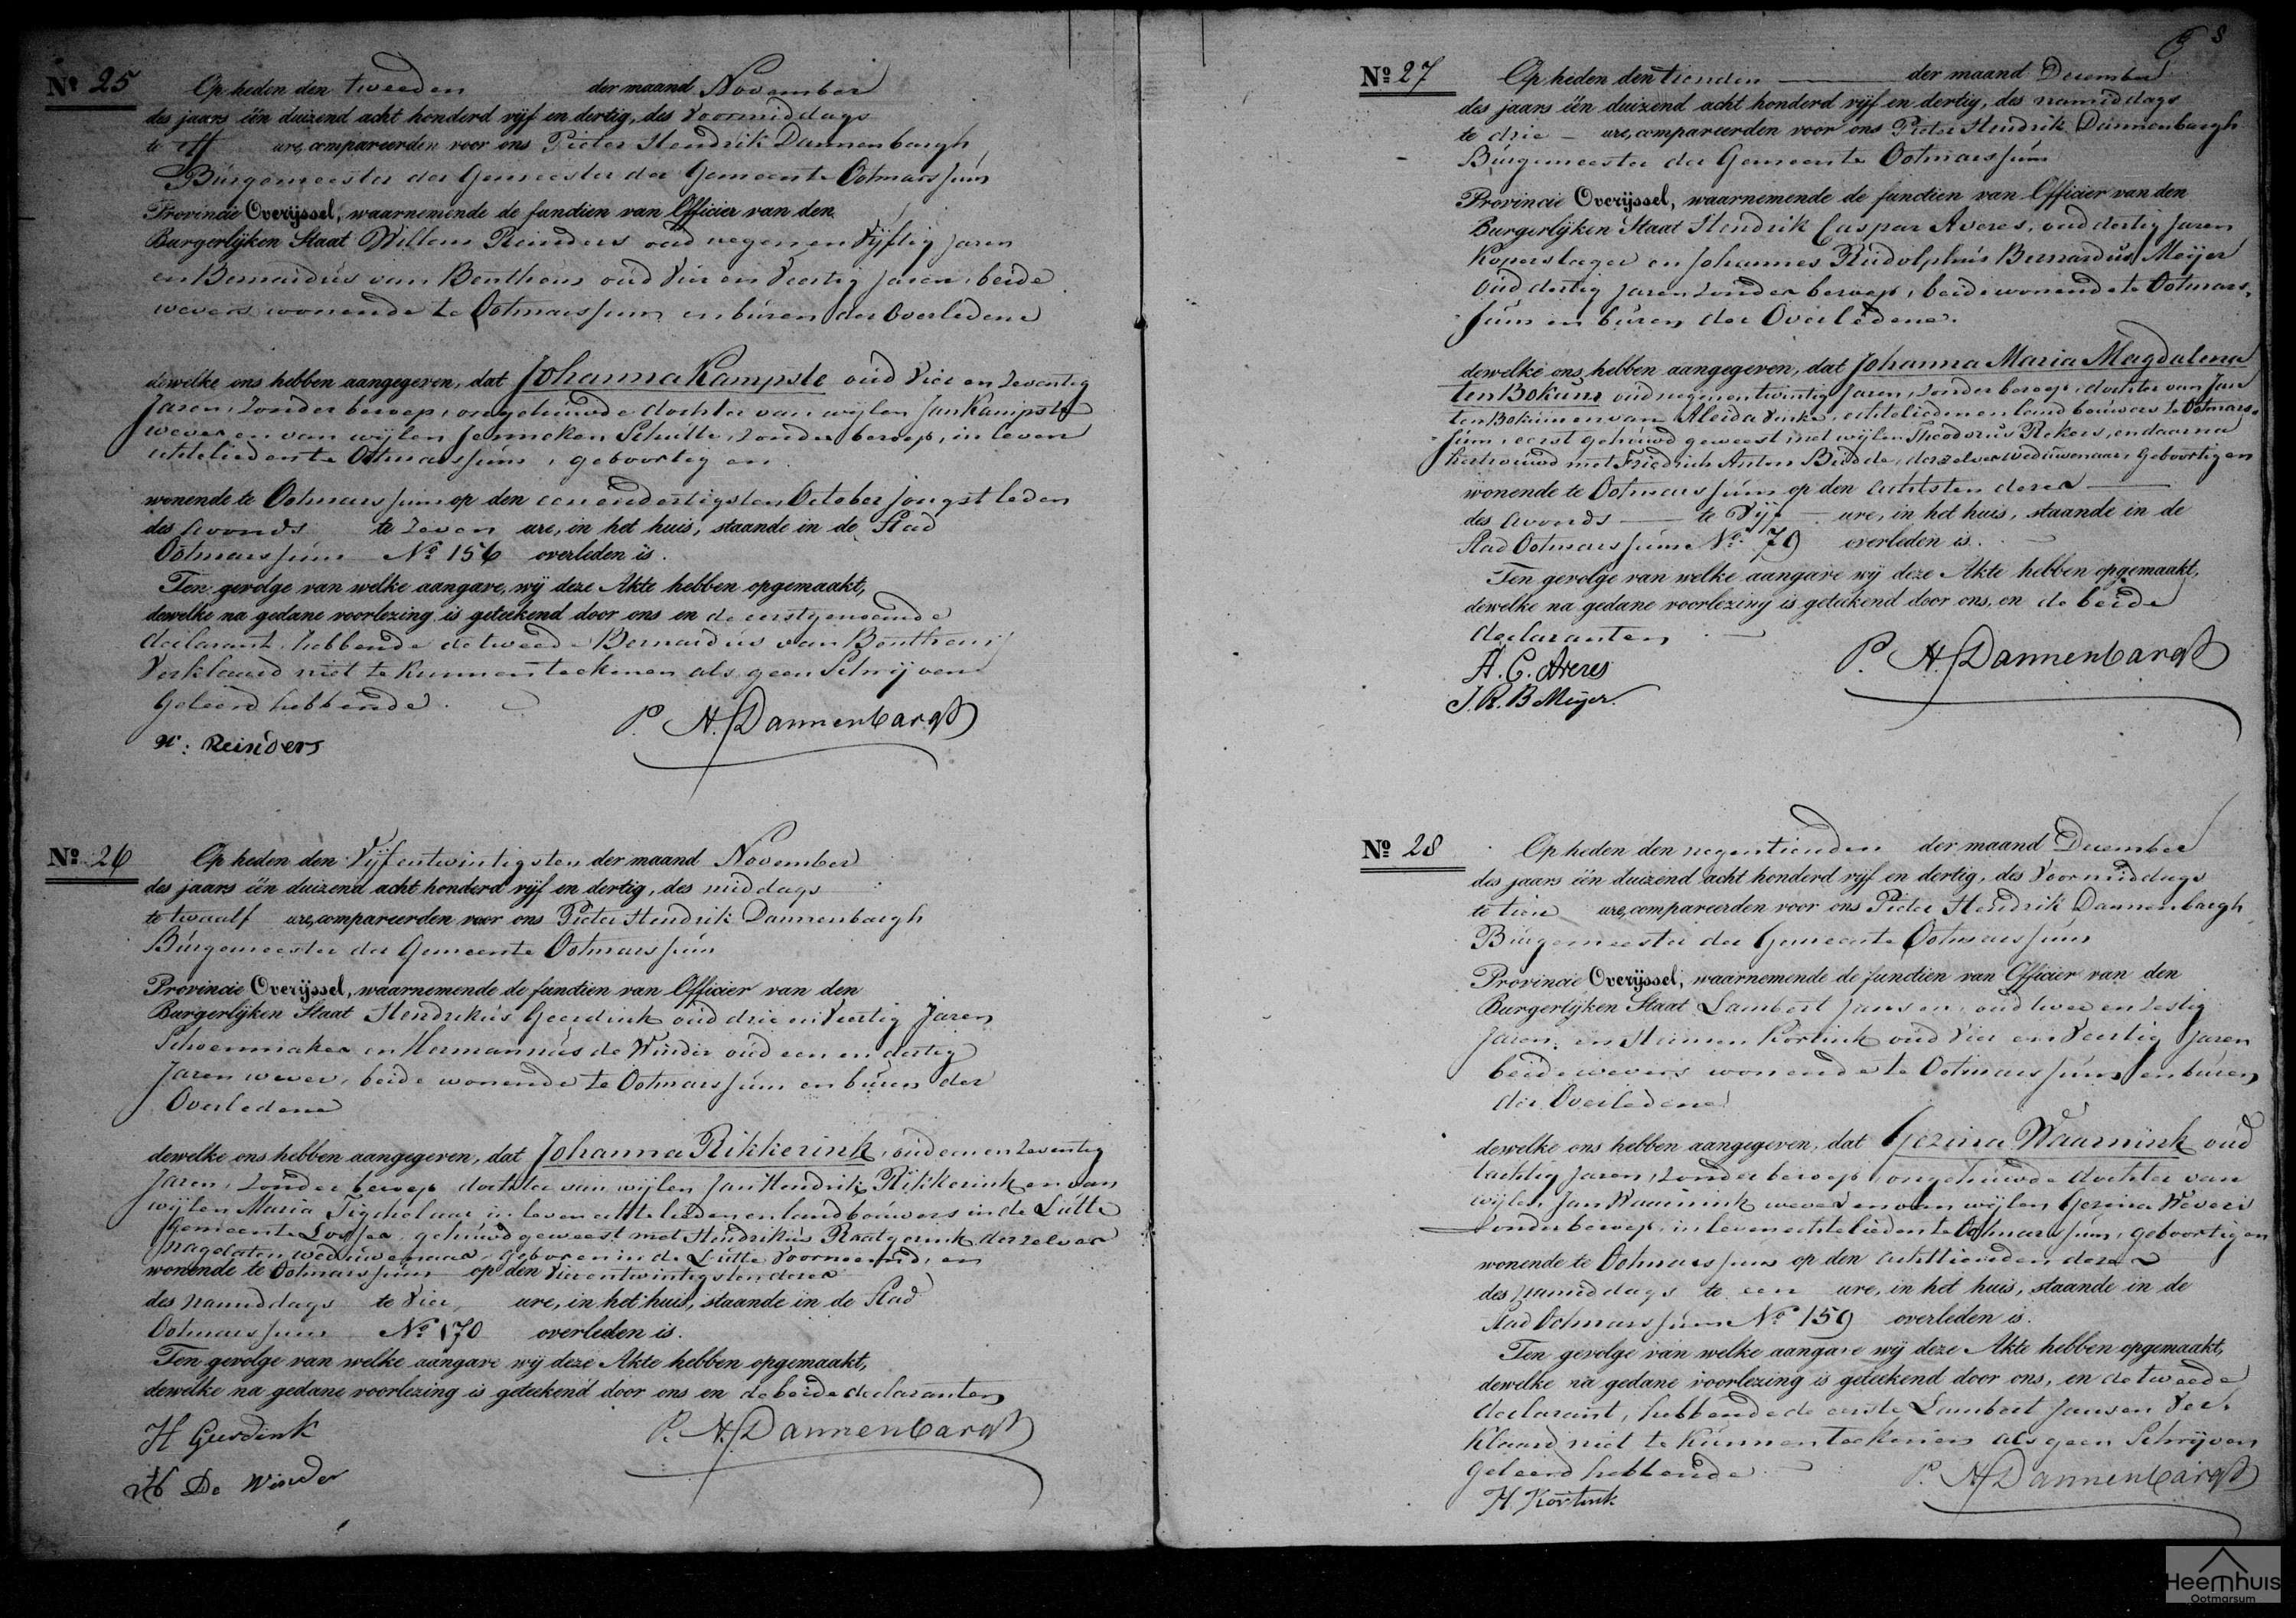 Nº 25 Op heden den tweeden der maand November
des jaars één duizend acht honderd vijf en dertig, des Voormiddags
te elf ure, compareerden voor ons Pieter Hendrik Dannenbargh
Burgemeester der Gemeester der Gemeente Ootmarssum
Provincie Overijssel, waarnemende de functien van Officier van den
Burgerlijken Staat Willem Reinders oud negen en Vijftig Jaren
en Bernardus van Benthem oud Vier en Veertig Jaren, beide
wevers wonende te Ootmarssum en buren der Overledene
dewelke ons hebben aangegeven, dat Johanna Kampste oud Vier en Zeventig
Jaren, Zonder beroep, ongehuwde dochter van wijlen Jan Kampste
wever en van wijlen Jenneken Schulte, Zonder beroep, in leven
echtelieden te Ootmarssum, geboortig en
wonende te Ootmarssum op den een en dertigsten October Jongstleden
des Avonds te Zeven ure, in het huis, staande in de Stad
Ootmarssum Nº 156 overleden is.
Ten gevolge van welke aangave, wij deze Akte hebben opgemaakt,
dewelke na gedane voorlezing is geteekend door ons en de eerstgenoemde
declarant, hebbende de tweede Bernardus van Benthem
Verklaard niet te kunnen teekenen als geen Schrijven
Geleerd hebbende.
P. H. Dannenbargh
W: Reinders
Nº 26 Op heden den Vijfentwintigsten der maand November
des jaars één duizend acht honderd vijf en dertig, des middags
te twaalf ure, compareerden voor ons Pieter Hendrik Dannenbargh
Burgemeester der Gemeente Ootmarssum
Provincie Overijssel, waarnemende de functien van Officier van den
Burgerlijken Staat Hendrikus Geerdink oud drie en Veertig Jaren
Schoenmaker en Hermannus de Winder oud een en dertig
Jaren wever, beide wonende te Ootmarssum en buren der
Overledene
dewelke ons hebben aangegeven, dat Johanna Rikkerink, oud een en Zeventig
Jaren, Zonder beroep dochter van wijlen Jan Hendrik Rikkerink en van
wijlen Maria Tijchelaar in leven echtelieden en landbouwers in de Lutte
Gemeente Losser, gehuwd geweest met Hendrikus Raatgerink derzelver
nagelaten weduwenaar, geboren in de Lutte Voornoemd, en
wonende te Ootmarssum op den Vierentwintigsten dezer
des namiddags te Vier, ure, in het huis, staande in de Stad
Ootmarssum Nº 170 overleden is.
Ten gevolge van welke aangave wij deze Akte hebben opgemaakt,
dewelke na gedane voorlezing is geteekend door ons en de beide declaranten
H Geerdink
P. H. Dannenbargh
H De Winder
8
Nº 27 Op heden den tienden der maand December
des jaars één duizend acht honderd vijf en dertig, des namiddags
te drie ure, compareerden voor ons Pieter Hendrik Dannenbargh
Burgemeester der Gemeente Ootmarssum
Provincie Overijssel, waarnemende de functien van Officier van den
Burgerlijken Staat Hendrik Caspar Averes, oud dertig Jaren
Koperslager en Johannes Rudolphus Bernardus Meijer
Oud dertig Jaren Zonder beroep, beide wonende te Ootmars-
sum en buren der Overledene.
dewelke ons hebben aangegeven, dat Johanna Maria Magdalena
ten Bokum oud negenentwintig Jaren, Zonder beroep, dochter van Jan
ten Bokum en van Aleida Vinke, echtelieden en landbouwers te Ootmars-
sum, eerst gehuwd geweest met wijlen Theodorus Rekers, en daarna
hertrouwd met Friedrich Anton Budde, derzelver weduwenaar, Geboortig en
wonende te Ootmarssum op den achtsten dezer
des Avonds te Vijf ure, in het huis, staande in de
Stad Ootmarssum Nº 79 overleden is.
Ten gevolge van welke aangave wij deze Akte hebben opgemaakt,
dewelke na gedane voorlezing is geteekend door ons, en de beide
declaranten
P. H. Dannenbargh
H. C. Averes
J. R. B Meijer.
Nº 28 Op heden den negentienden der maand December
des jaars één duizend acht honderd vijf en dertig, des Voormiddags
te tien ure, compareerden voor ons Pieter Hendrik Dannenbargh
Burgemeester der Gemeente Ootmarssum
Provincie Overijssel, waarnemende de functien van Officier van den
Burgerlijken Staat Lambert Jansen, oud twee en Zestig
Jaren, en Harmen Kortink oud Vier en Veertig Jaren
beide wevers wonende te Ootmarssum en buren
der Overledene
dewelke ons hebben aangegeven, dat Gezina Waarnink oud
tachtig Jaren, Zonder beroep, ongehuwde dochter van
wijlen Jan Waarnink wever en van wijlen Gezina Wevers
Zonder beroep, in leven echtelieden te Ootmarssum, geboortig en
wonende te Ootmarssum op den achttienden dezer
des namiddags te een ure, in het huis, staande in de
Stad Ootmarssum Nº 159 overleden is.
Ten gevolge van welke aangave wij deze Akte hebben opgemaakt,
dewelke na gedane voorlezing is geteekend door ons, en de tweede
declarant, hebbende de eerste Lambert Jansen Ver-
klaard niet te kunnen teekenen als geen Schrijven
geleerd hebbende
P. H. Dannenbargh
H. Kortink
Heemhuis
Ootmarsum